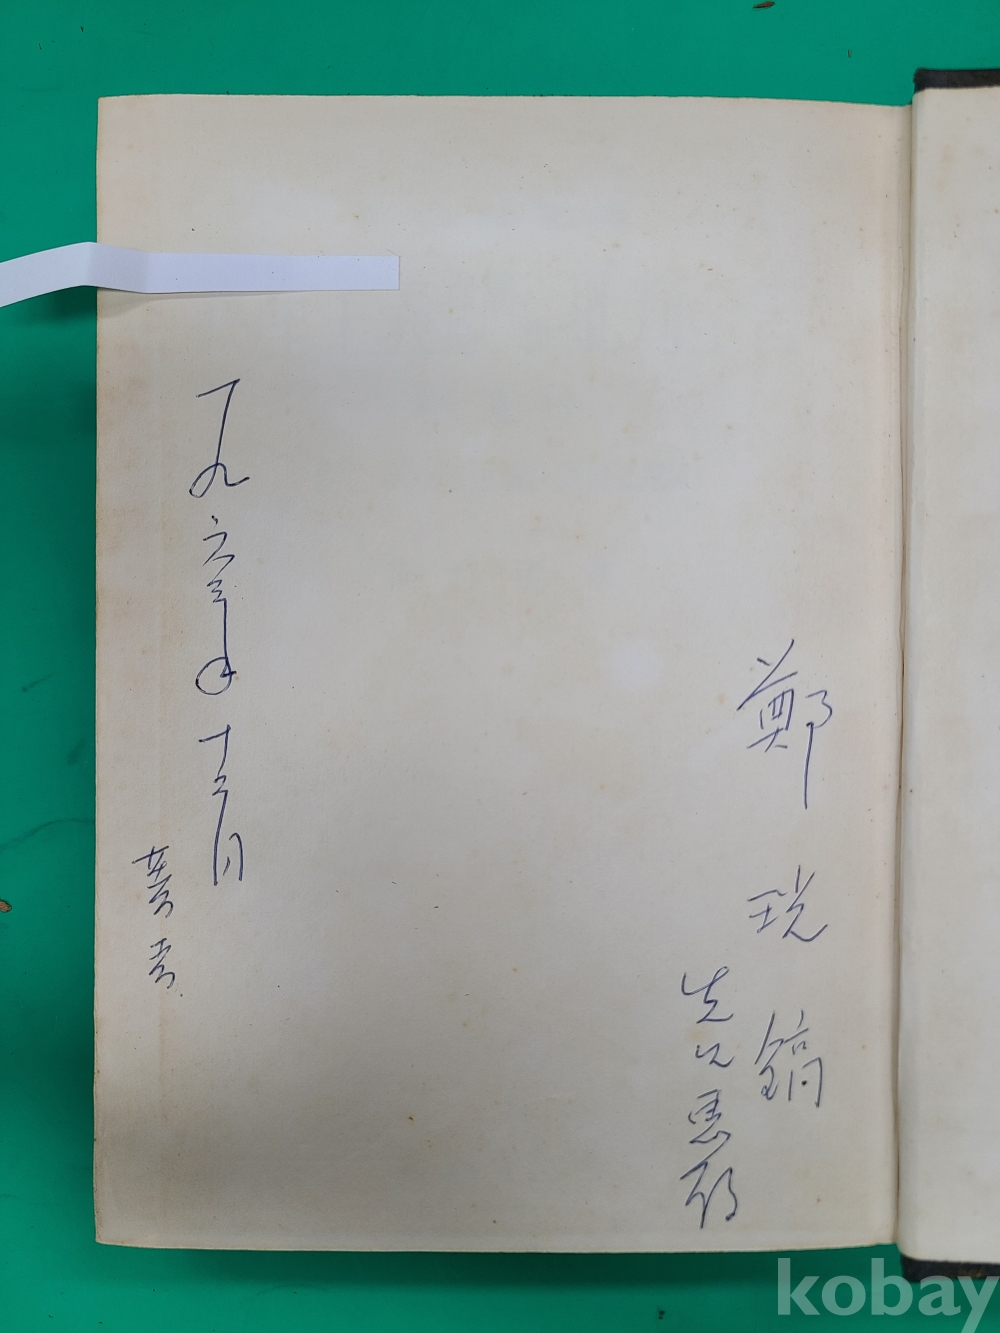 鄭珖鎬
先生惠存
一九六三年十二月
著者
kobay